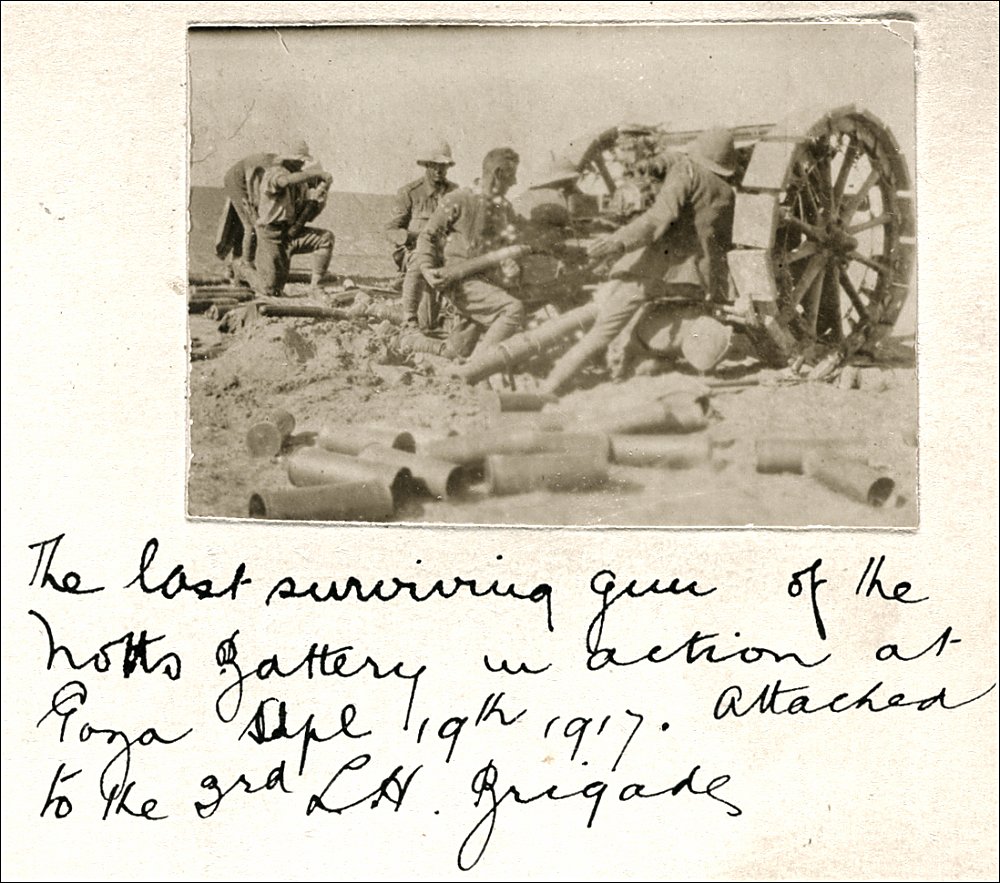 The last surviving gun of the
Notts Battery in action at
Gaza 19th 1917. Attached
to the 3rd L.H. Brigade